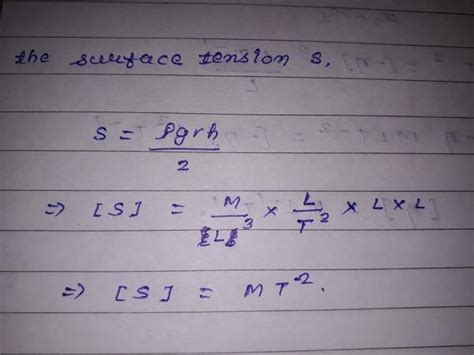 the surface tension s,
S = ρgrh / 2
⇒ [S] = M / L³ × L / T² × L × L
⇒ [S] = MT⁻².